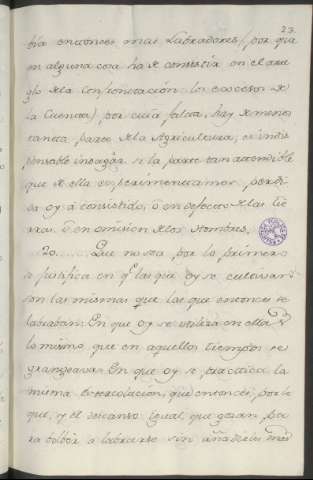 23
bía entonces mas Labradores (por que
en alguna cosa ha de consistir en el arre
glo de la confrontación los excesos de
la Cuenta) por cuia falta, hay de menos
tanta parte de la Agricultura, es indis
pensable indagar si la parte tan atendible
que de ella experimentamos perdi
da oy á consistido, ò en defecto de las tie
rras, ò en omision de los hombres.
20...... Que no sea por lo primero
se justifica en q.e las que oy se cultiban
son las mismas que las que entonces se
labraban: En que oy se utiliza en ellas
lo mismo que en aquellos tiempos se
grangeava: En que oy se practica la
misma estercolacion, que entonces, por lo
que, y el descanso igual que gozan pa
ra bolber a labrarse sin añadirles mas